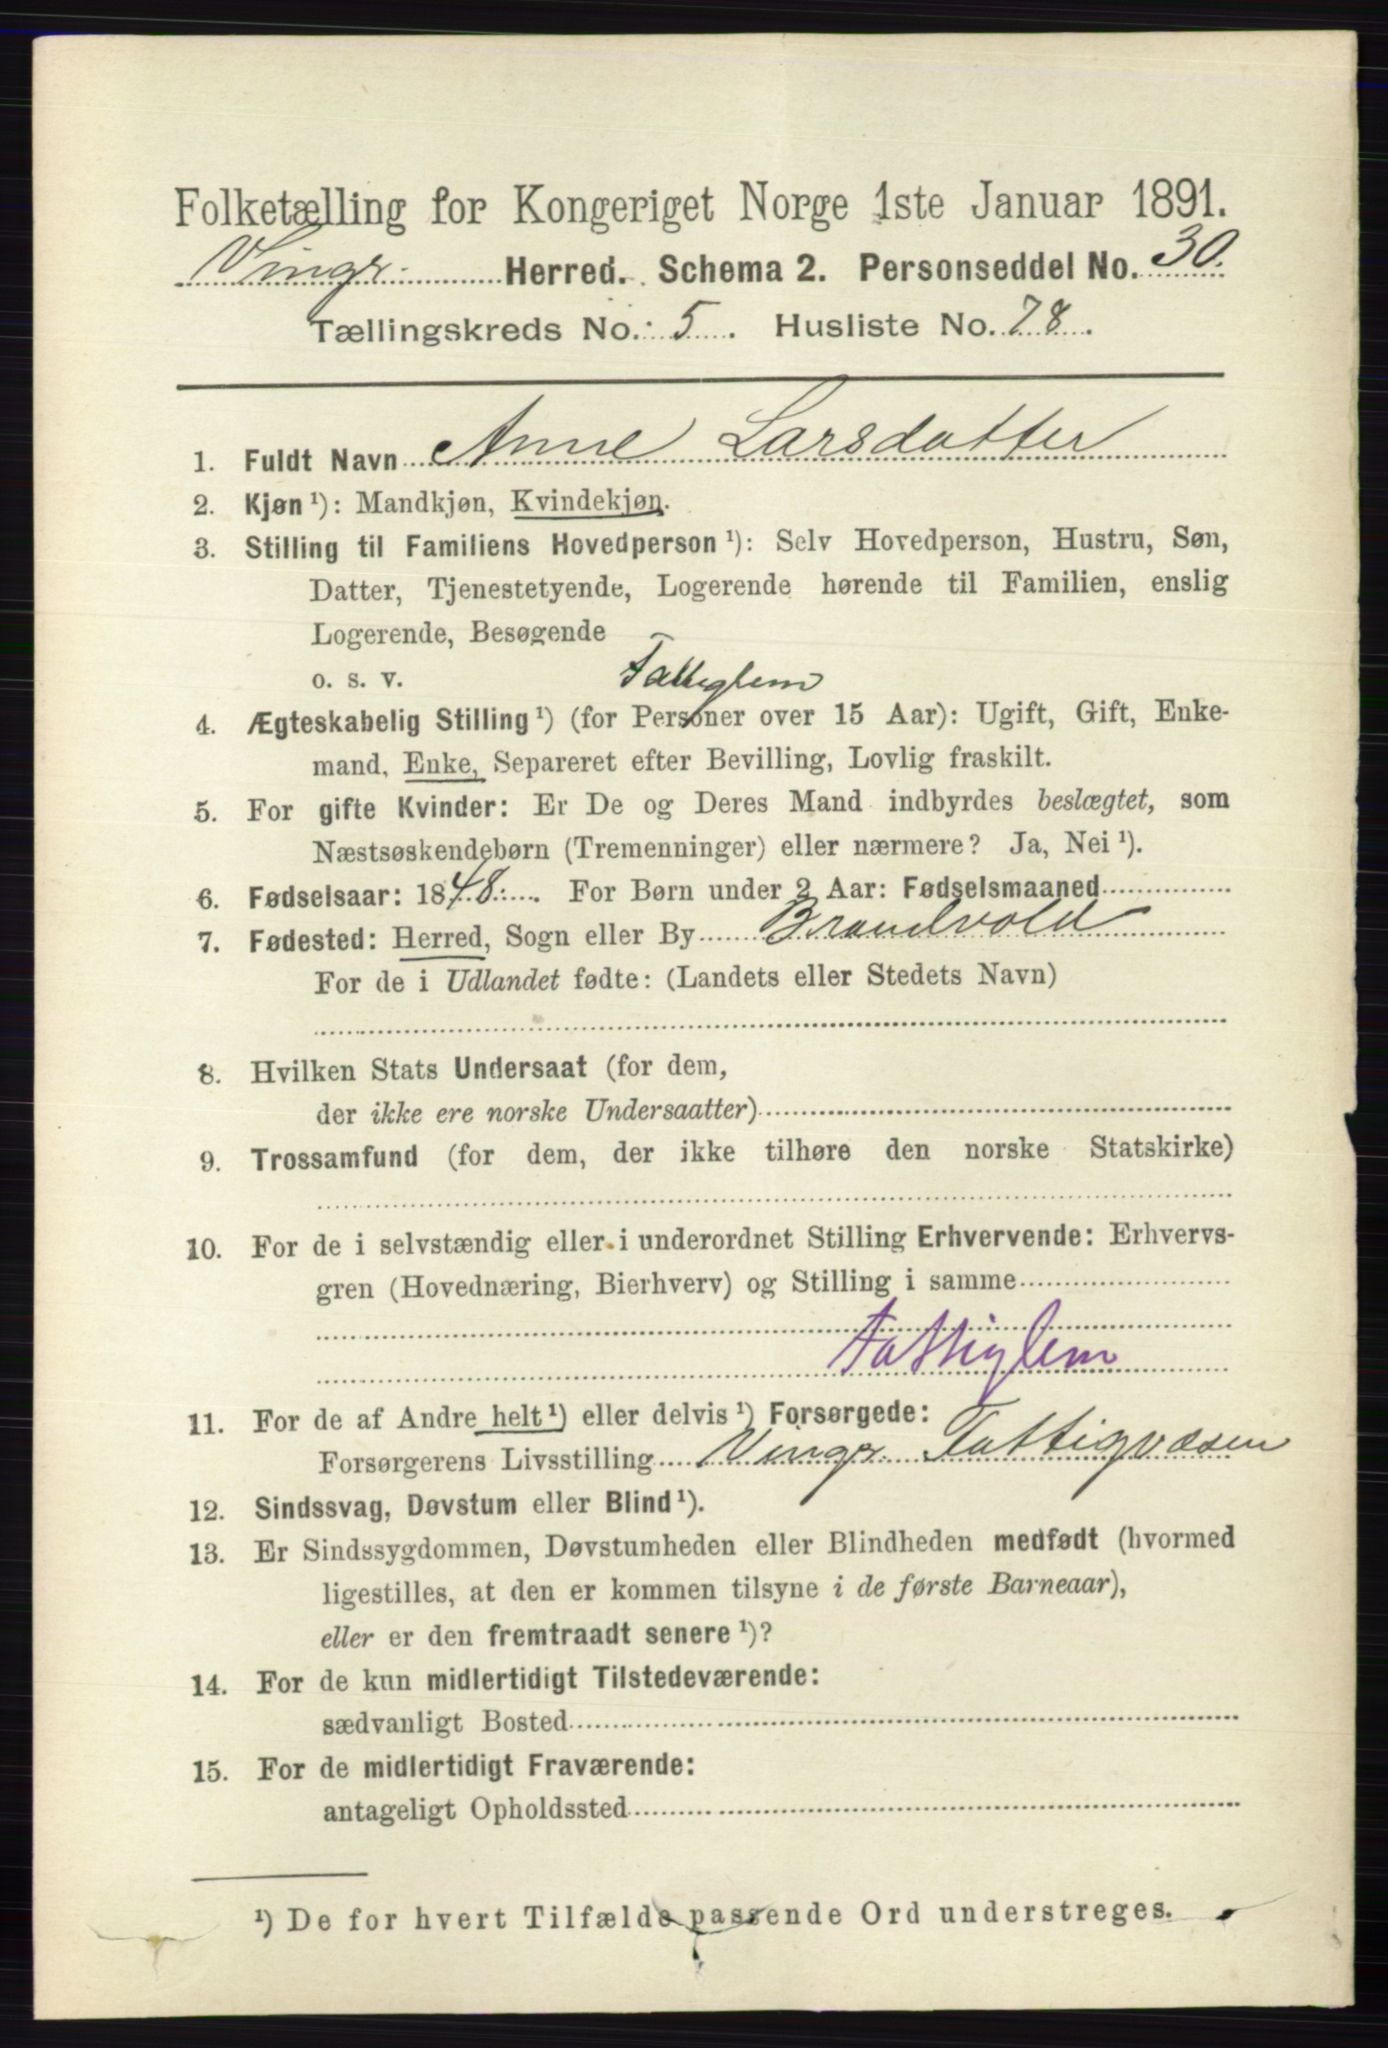 Folketælling for Kongeriget Norge 1ste Januar 1891.
Vingr. Herred. Schema 2. Personseddel No. 30.
Tællingskreds No. 5. Husliste No. 78.
1. Fuldt Navn Anne Larsdatter
2. Kjøn ¹): Mandkjøn, Kvindekjøn.
3. Stilling til Familiens Hovedperson ¹): Selv Hovedperson, Hustru, Søn,
Datter, Tjenestetyende, Logerende hørende til Familien, enslig
Logerende, Besøgende
o. s. v. Fattiglem
4. Ægteskabelig Stilling ¹) (for Personer over 15 Aar): Ugift, Gift, Enke-
mand, Enke, Separeret efter Bevilling, Lovlig fraskilt.
5. For gifte Kvinder: Er De og Deres Mand indbyrdes beslægtet, som
Næstsøskendebørn (Tremenninger) eller nærmere? Ja, Nei ¹).
6. Fødselsaar: 1848. For Børn under 2 Aar: Fødselsmaaned
7. Fødested: Herred, Sogn eller By Brandvold
For de i Udlandet fødte: (Landets eller Stedets Navn)
8. Hvilken Stats Undersaat (for dem,
der ikke ere norske Undersaatter)
9. Trossamfund (for dem, der ikke tilhøre den norske Statskirke)
10. For de i selvstændig eller i underordnet Stilling Erhvervende: Erhvervs-
gren (Hovednæring, Bierhverv) og Stilling i samme
Fattiglem
11. For de af Andre helt ¹) eller delvis ¹) Forsørgede:
Forsørgerens Livsstilling Vingr. Fattigvæsen
12. Sindssvag, Døvstum eller Blind ¹).
13. Er Sindssygdommen, Døvstumheden eller Blindheden medfødt (hvormed
ligestilles, at den er kommen tilsyne i de første Barneaar),
eller er den fremtraadt senere ¹)?
14. For de kun midlertidigt Tilstedeværende:
sædvanligt Bosted
15. For de midlertidigt Fraværende:
antageligt Opholdssted
¹) De for hvert Tilfælde passende Ord understreges.